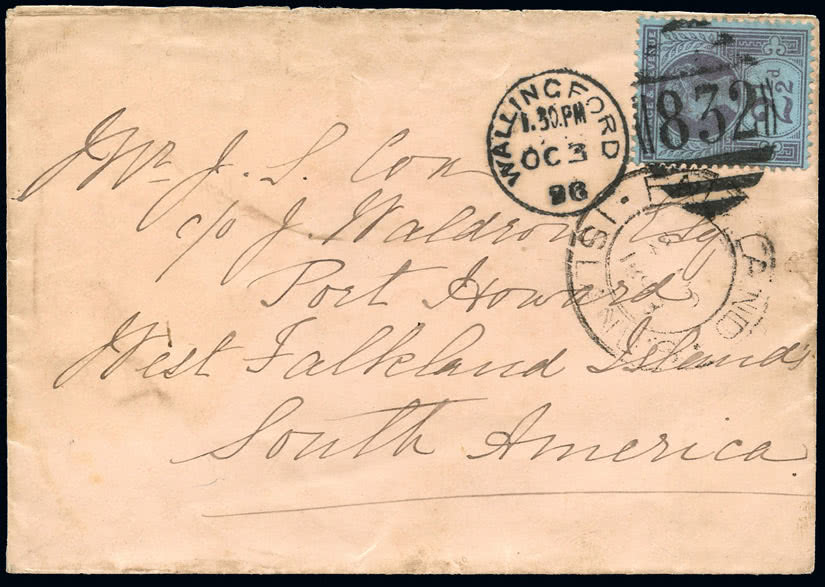 WALLINGFORD
1.30.PM
OC 3
96
832
2½d
Mr J. S. Cox
c/o J. Waldron Esq
Port Howard
West Falkland Islands
South America